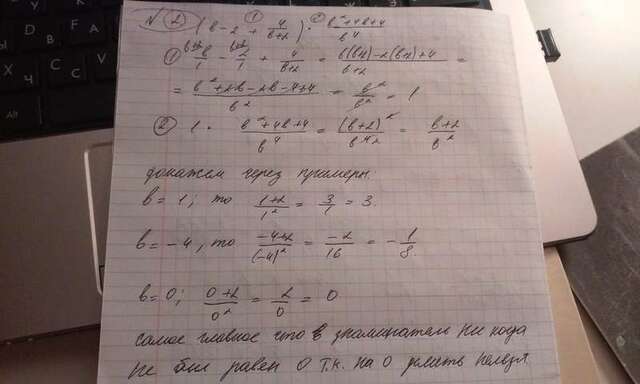 № ② (в-2 + 4/(в+2)) · (в²+4в+4)/в⁴
① в/1 - 2/1 + 4/(в+2) = (в(в+2)-2(в+2)+4)/(в+2) =
= (в²+2в-2в-4+4)/в² = в²/в² = 1
② 1 · (в²+4в+4)/в⁴ = (в+2)²/в⁴ ² = (в+2)/в²
докажем через примеры.
в=1; то (1+2)/1² = 3/1 = 3.
в=-4, то (-4+2)/(-4)² = -2/16 = -1/8.
в=0; (0+2)/0² = 2/0 = 0
самое главное что в знаминатель ни когда
не был равен 0 т.к. на 0 делить нельзя.